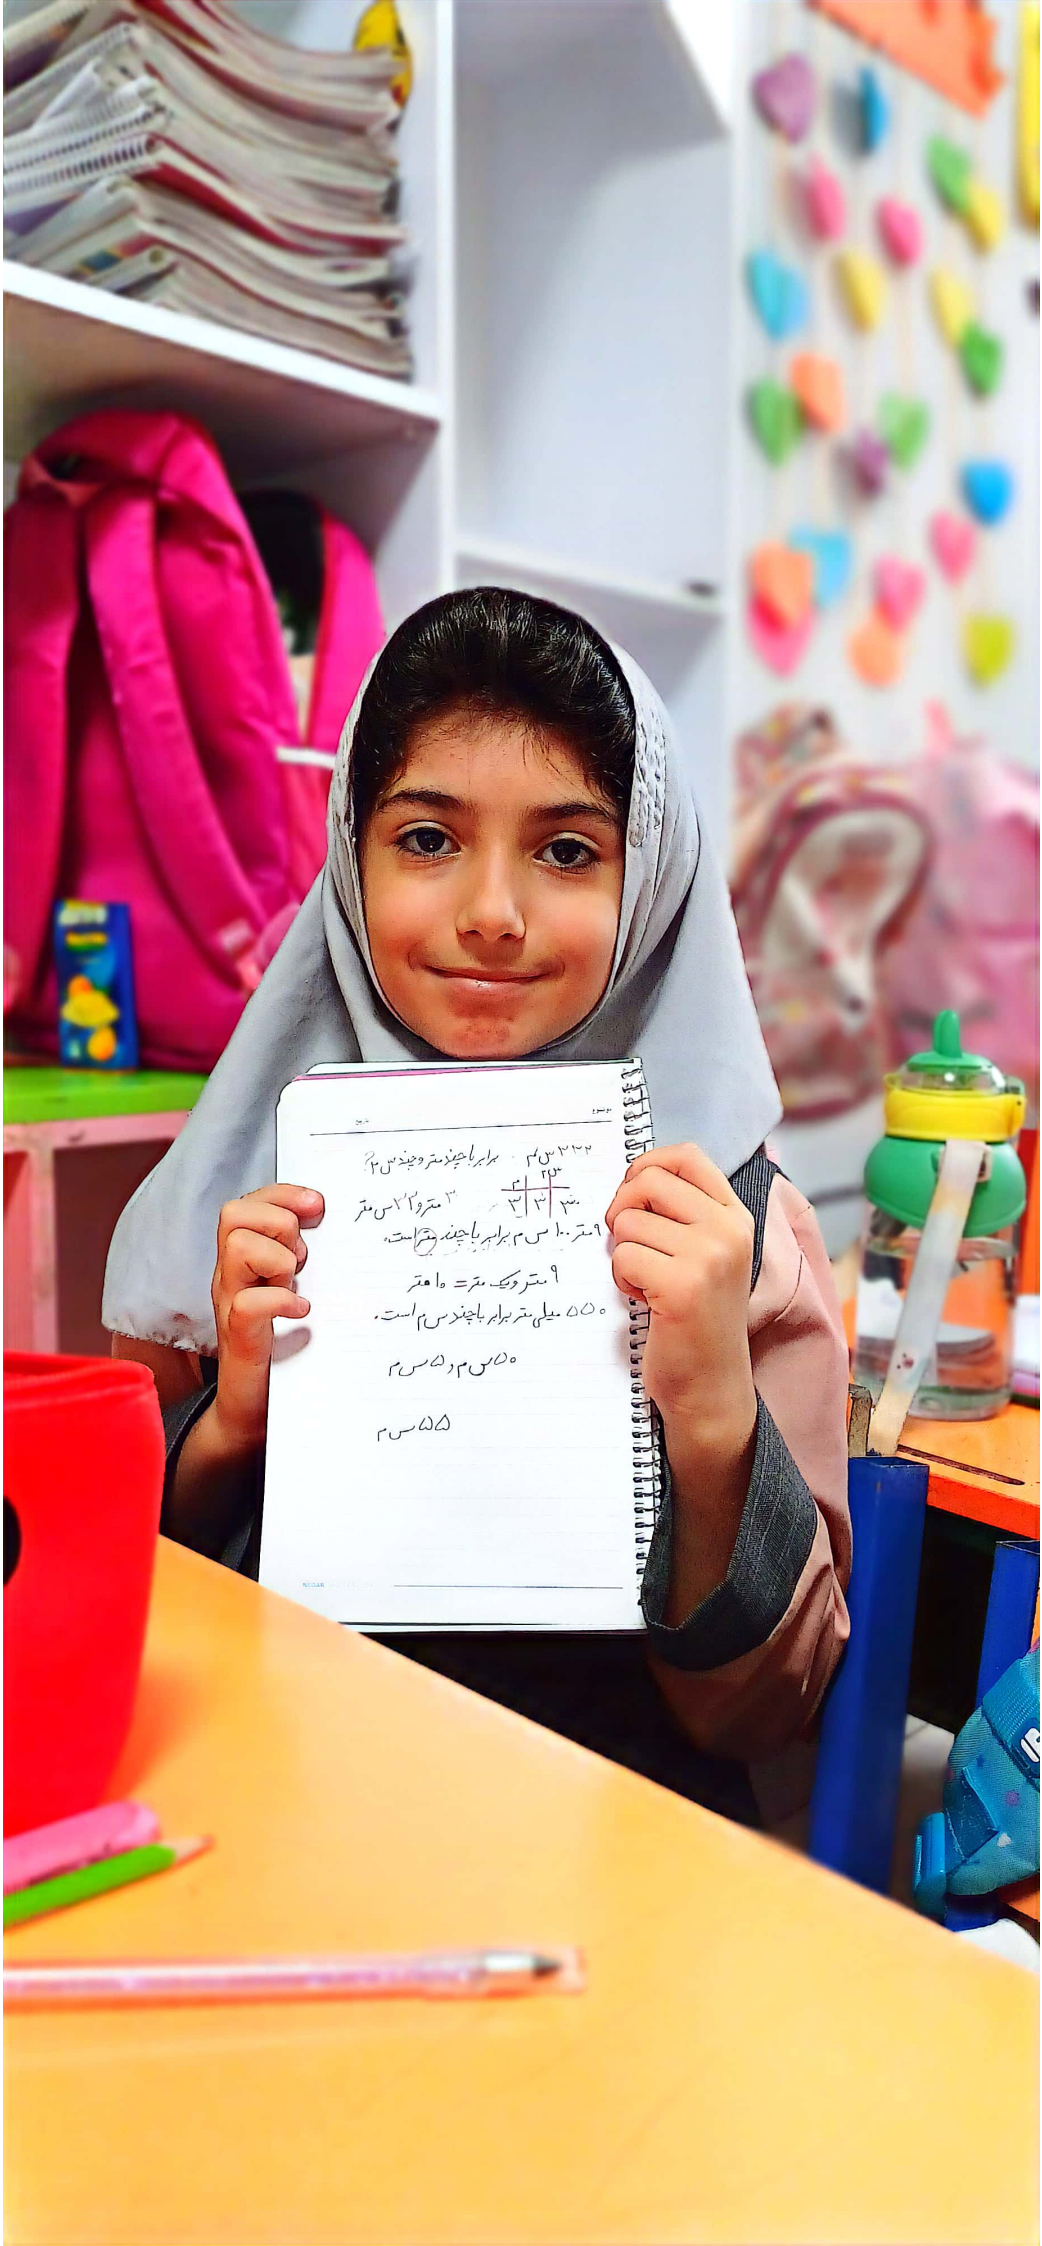 موضوع
تاریخ
۳۳۲ س م برابر با چند متر و چند س م؟
۳ متر و ۳۲ س متر
۹ متر ۱۰۰ س م برابر با چند متر است.
۹ متر و یک متر = ۱۰ متر
۵۵۰ میلی متر برابر با چند س م است.
۵۰ س م و ۵ س م
۵۵ س م
NEGAR